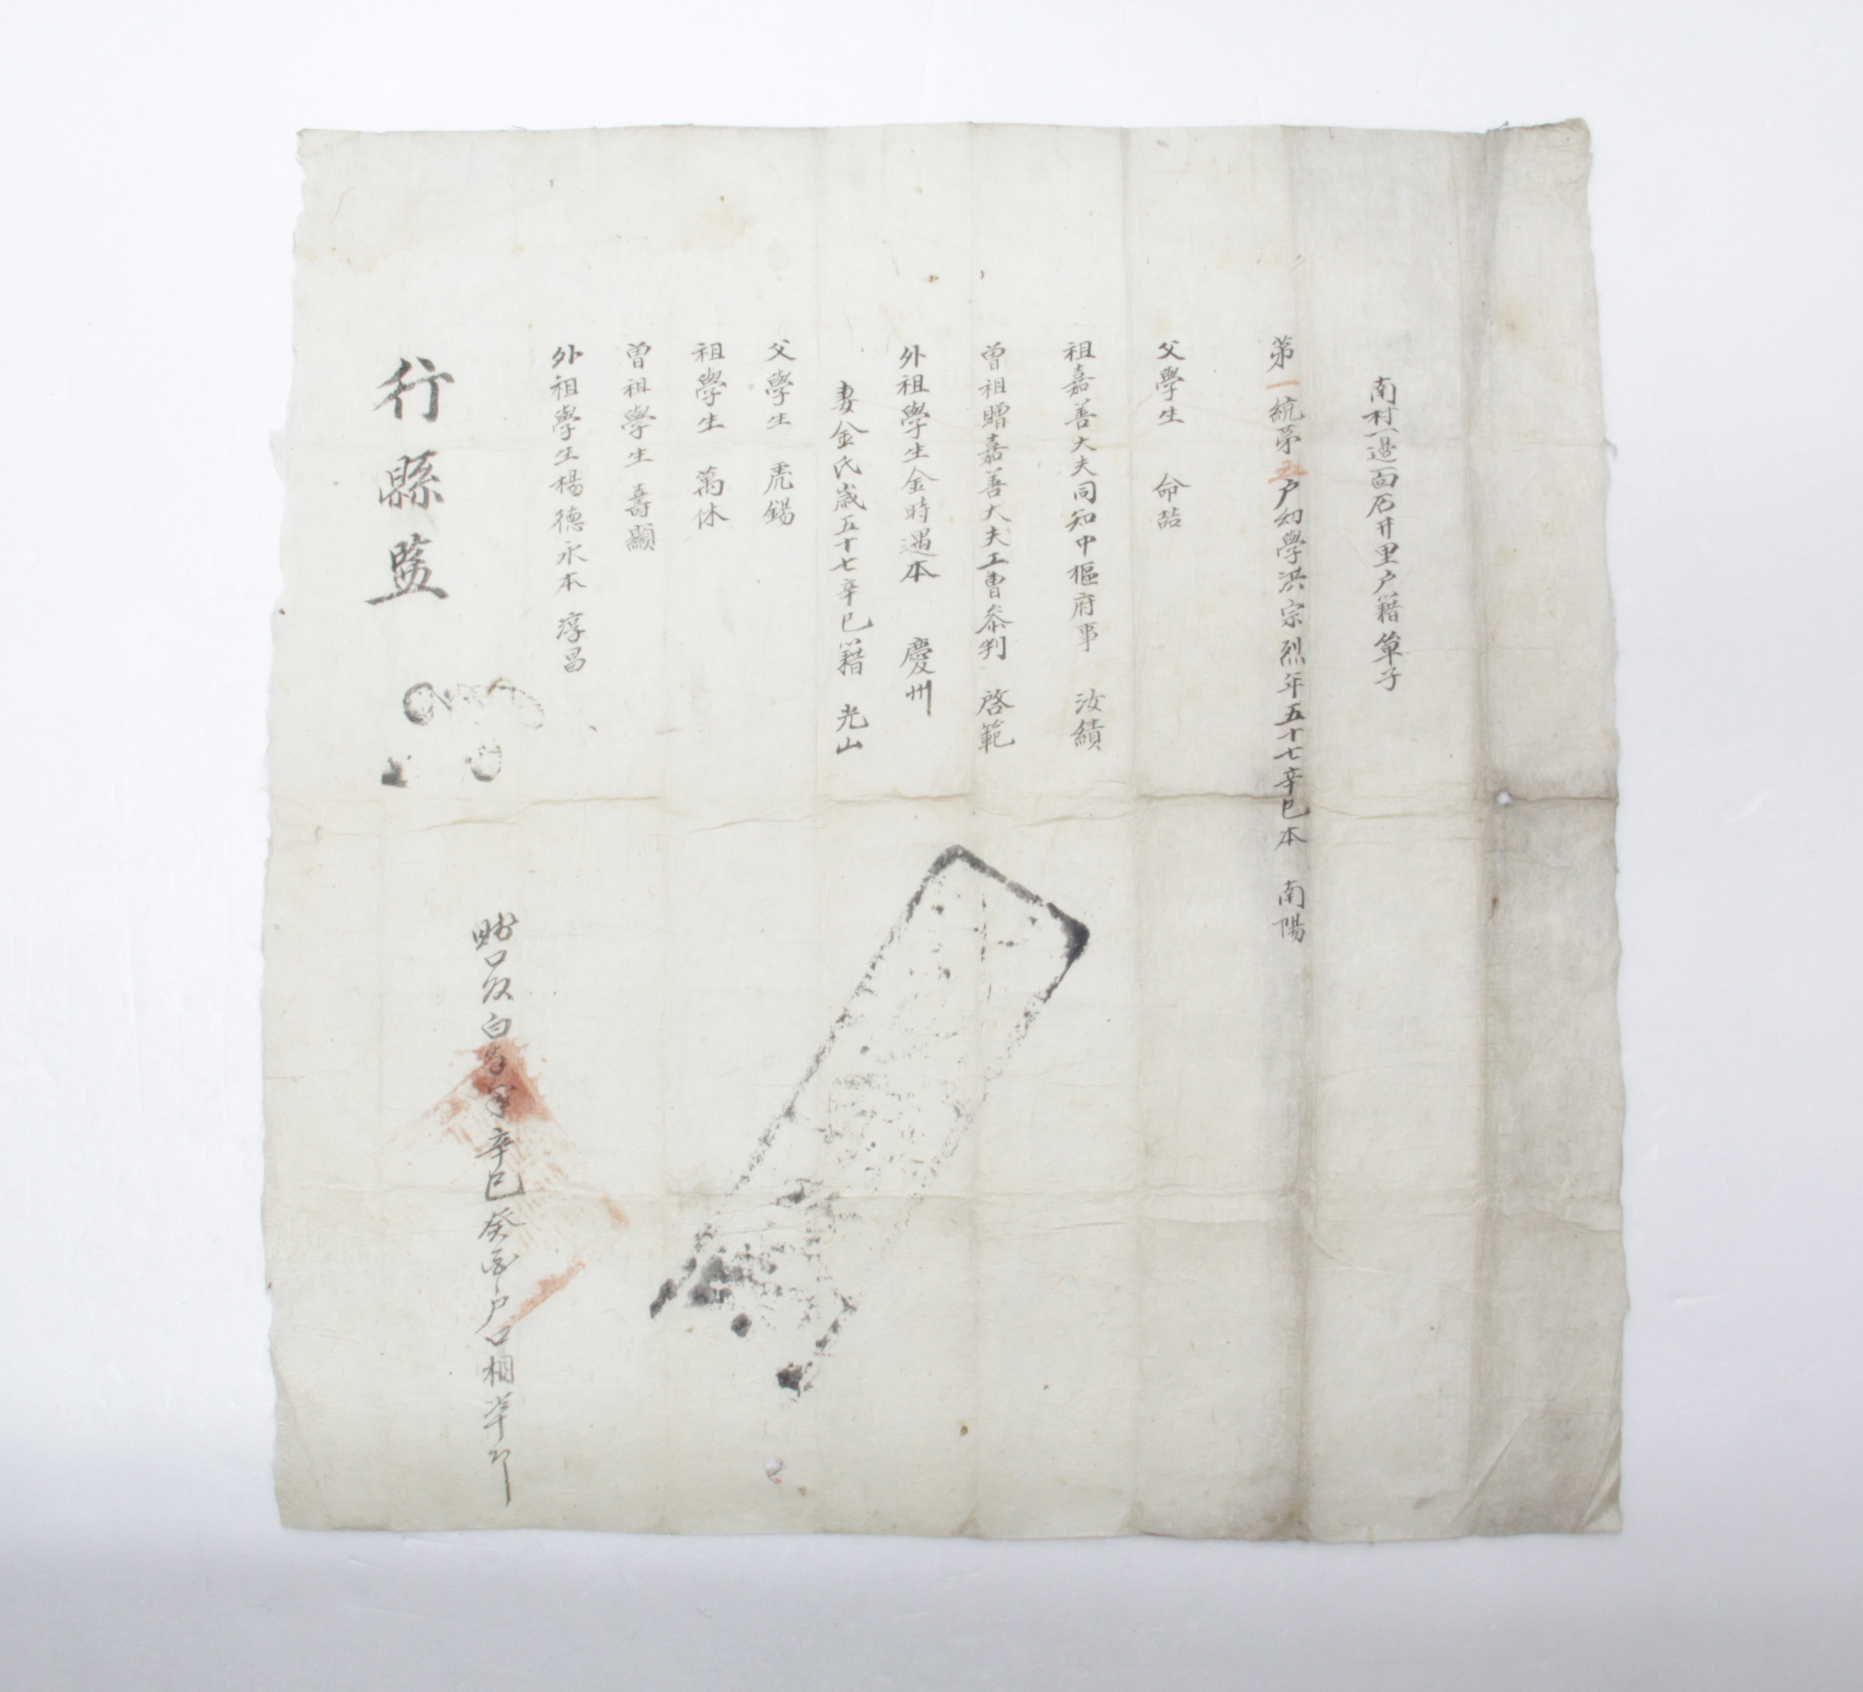 南村一邊面石井里戶籍單子
第一統第五戶幼學洪宗烈年五十七辛巳本 南陽
父學生 命喆
祖嘉善大夫同知中樞府事 汝績
曾祖贈嘉善大夫工曹叅判 啓範
外祖學生金時遇本 慶州
妻金氏歲五十七辛巳籍 光山
父學生 虎錫
祖學生 萬休
曾祖學生 壽顯
外祖學生楊德永本 淳昌
行縣監
辛巳癸酉戶口相準印